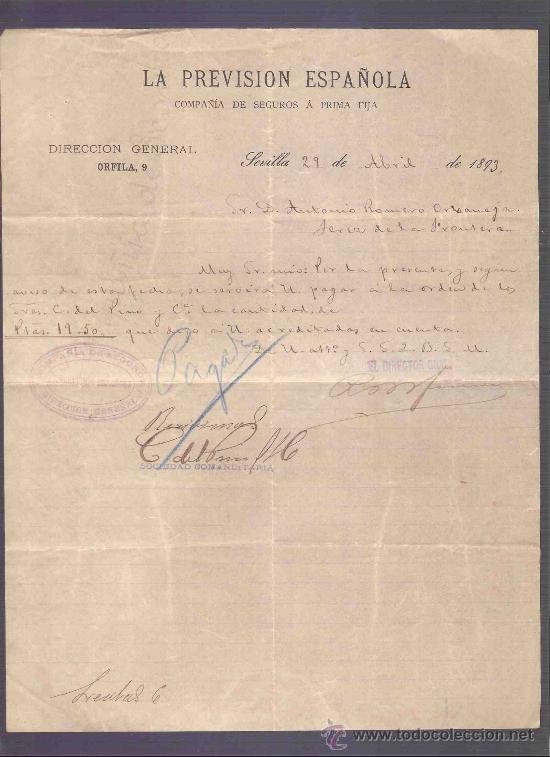 LA PREVISION ESPAÑOLA
COMPAÑÍA DE SEGUROS Á PRIMA FIJA
DIRECCION GENERAL
ORFILA, 9
Sevilla 29 de Abril de 1893.
Sr. D. Antonio Romero Orbaneja.
Jerez de la Frontera
Muy Sr. mio: Por la presente, y segun
aviso de esta fecha, se servirá U. pagar á la orden de los
Sres. C. del Pino y Cª la cantidad de
Ptas. 19.50 que dejo á U acreditadas en cuenta.
De U. atto. y S. S. Q. B. S. M.
COMPAÑÍA DE SEGUROS
DIRECCION GENERAL
Pagado
EL DIRECTOR GRAL.
Recibimos
C del Pino y Cª
SOCIEDAD COMANDITARIA
todocoleccion
www.todocoleccion.net